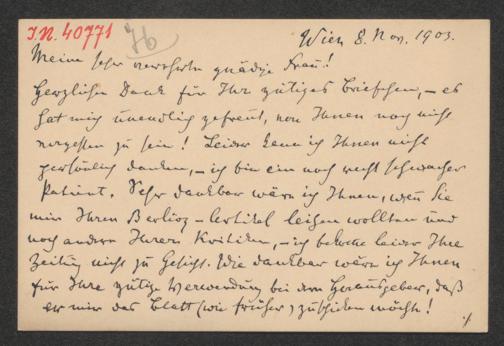 I.N. 40771
76
Wien 8. Nov. 1903.
Meine sehr verehrte gnädige Frau!
Herzlichen Dank für Ihr gütiges Briefchen, – es
hat mich unendlich gefreut, von Ihnen noch nicht
vergessen zu sein! Leider kann ich Ihnen nicht
persönlich danken, – ich bin ein noch recht schwacher
Patient. Sehr dankbar wäre ich Ihnen, wenn Sie
mir Ihren Berlioz-Artikel leihen wollten und
noch andere Ihrer Kritiken, – ich bekomme leider Ihre
Zeitung nicht zu Gesicht. Wie dankbar wäre ich Ihnen
für Ihre gütige Verwendung bei dem Herausgeber, daß
er mir das Blatt (wie früher) zuschicken möchte!